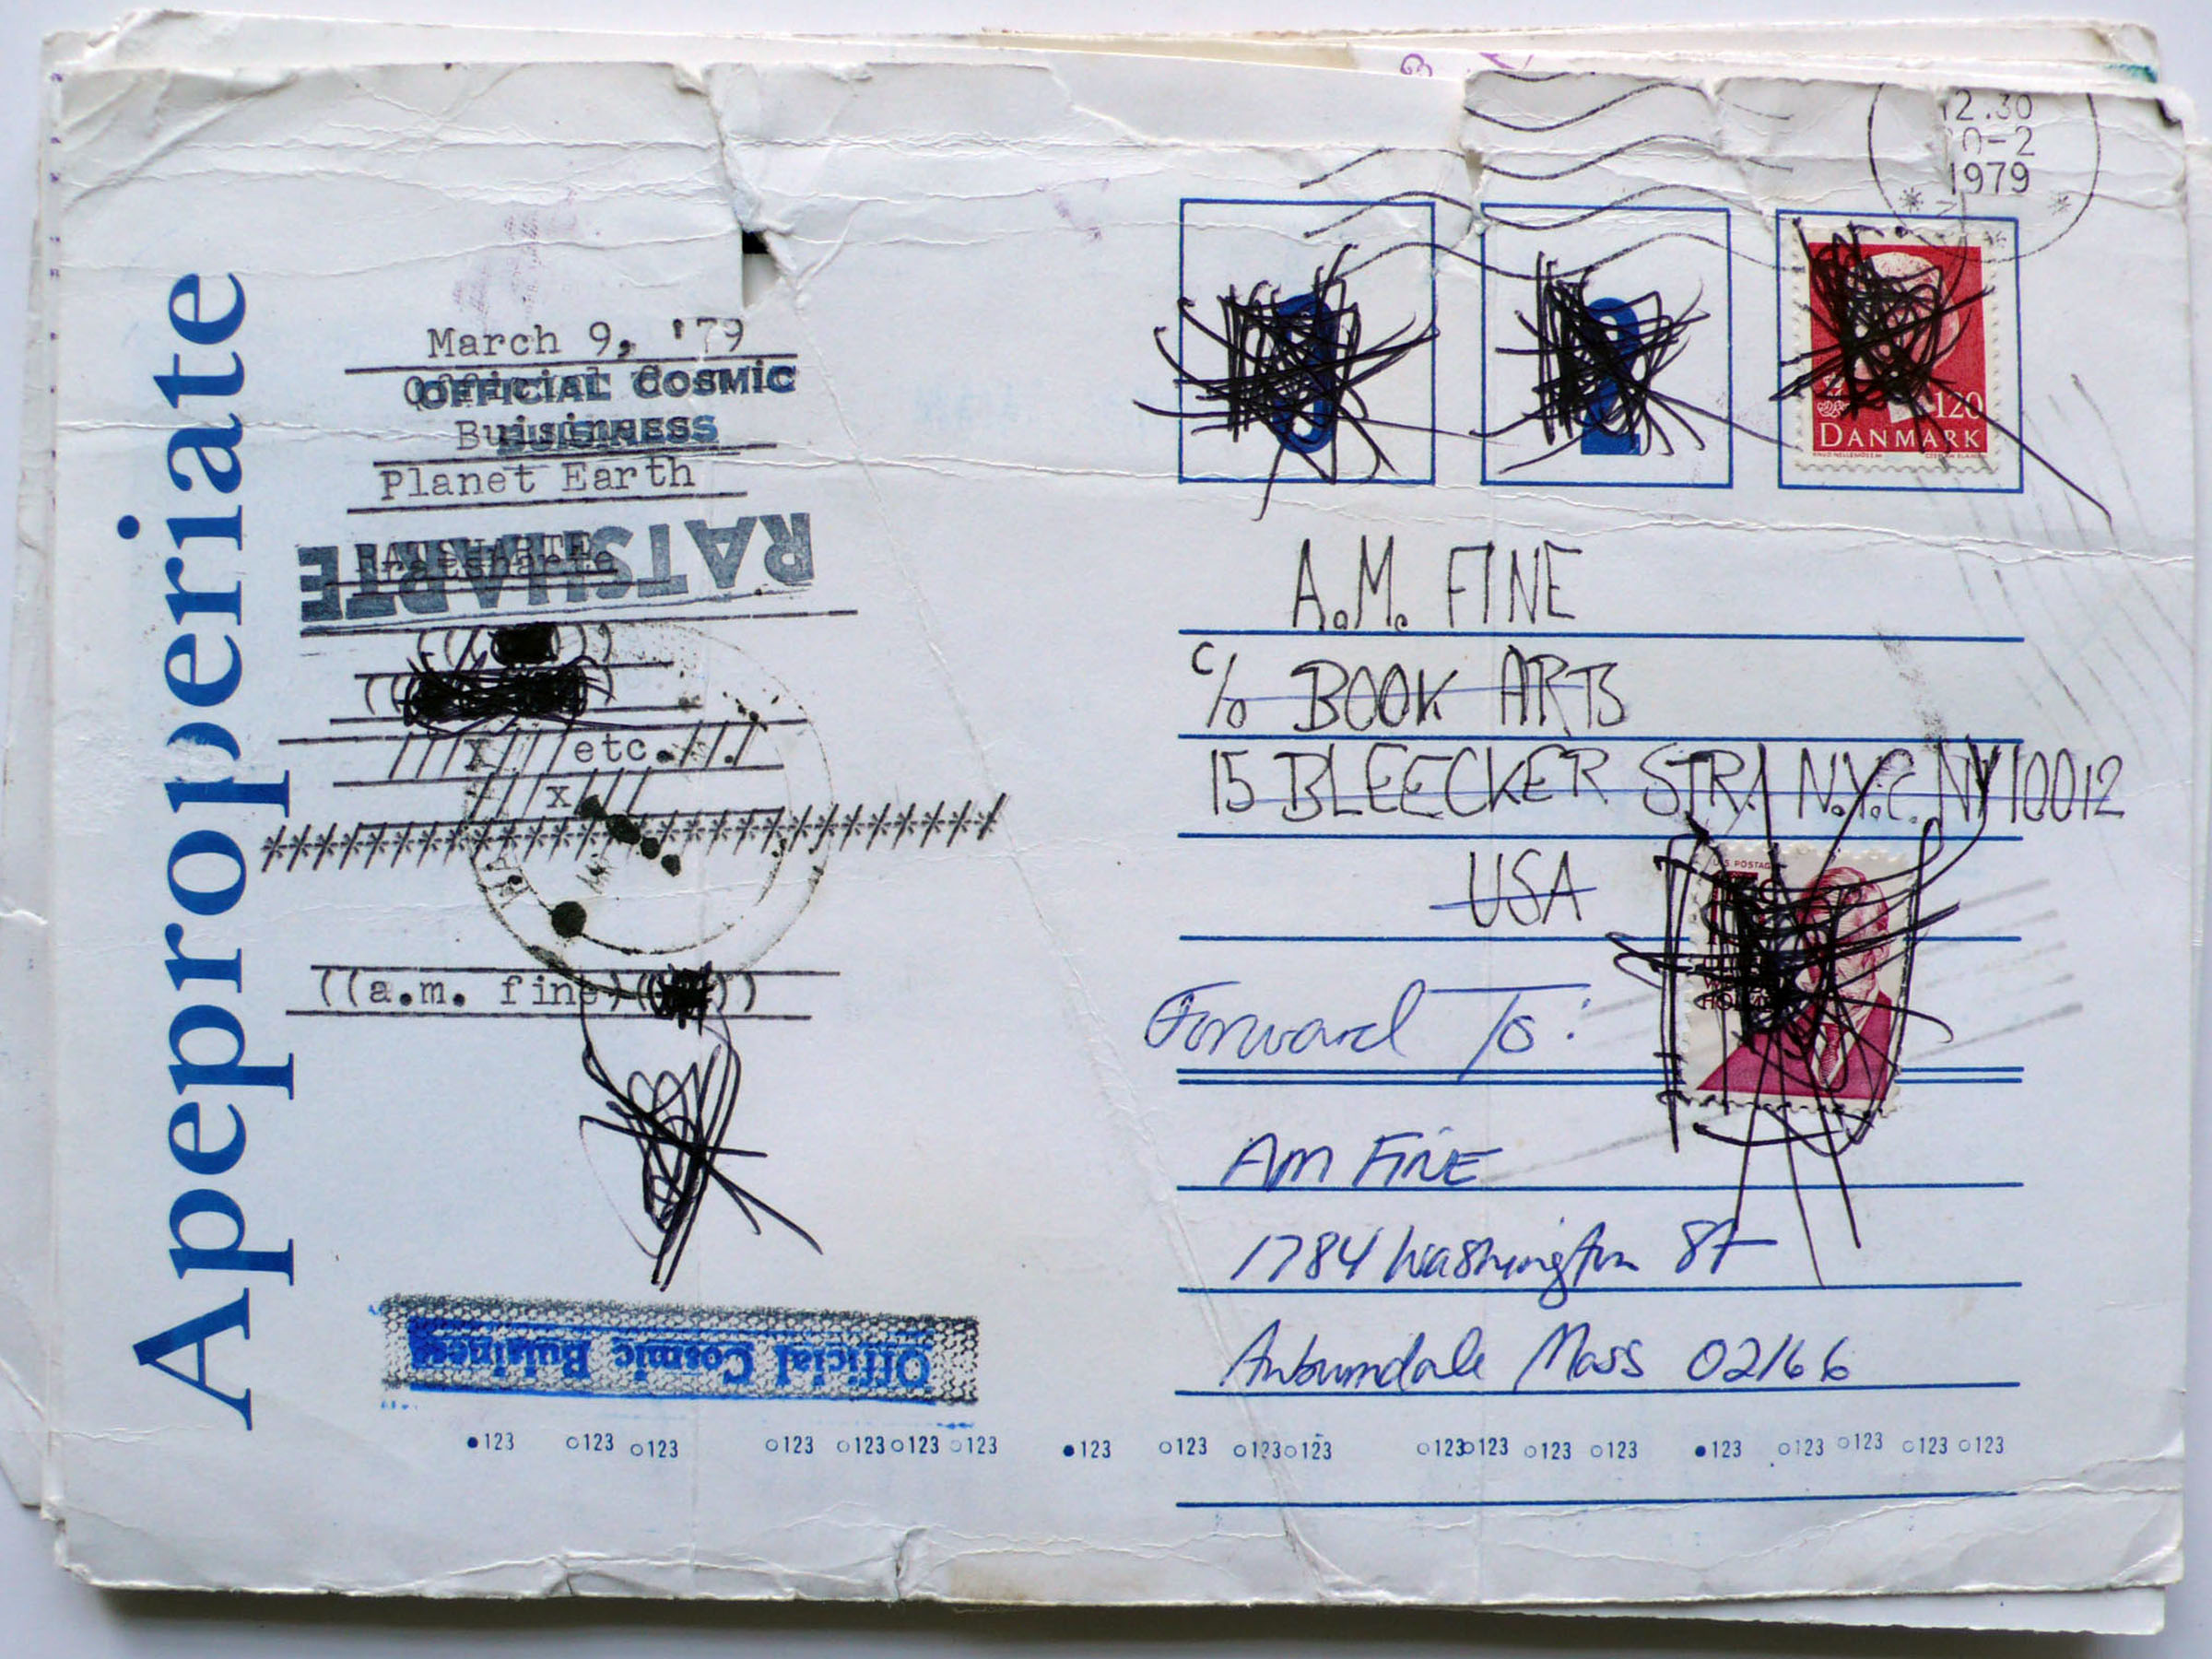 Apeproperiate
12.30
0-2
1979
120
DANMARK
March 9, '79
OFFICIAL COSMIC
BUISINESS
Planet Earth
RATSHARTE
/////x////etc.///./
////x////
((a.m. fine)((
Official Cosmic Buisiness
A.M. FINE
c/o BOOK ARTS
15 BLEECKER STR. N.Y.C. NY 10012
USA
U.S. POSTAG
Forward To:
Am FINE
1784 Washington St
Auburndale Mass 02166
●123 ○123 ○123 ○123 ○123 ○123 ○123 ●123 ○123 ○123 ○123 ○123 ○123 ○123 ○123 ●123 ○123 ○123 ○123 ○123